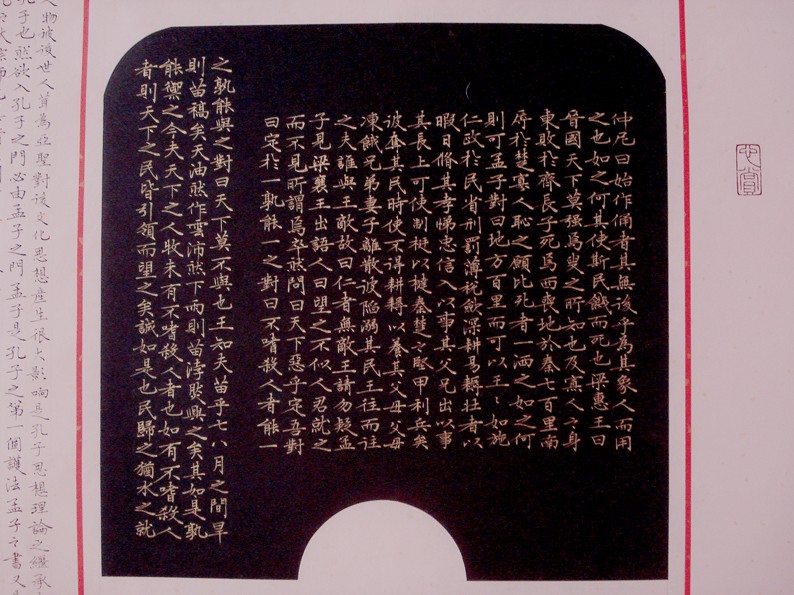 心賞
仲尼曰始作俑者其無後乎為其象人而用
之也如之何其使斯民饑而死也梁惠王曰
晉國天下莫强焉叟之所知也及寡人之身
東敗於齊長子死焉西喪地於秦七百里南
辱於楚寡人恥之願比死者一洒之如之何
則可孟子對曰地方百里而可以王〻如施
仁政於民省刑罰薄稅斂深耕易耨壯者以
暇日脩其孝悌忠信入以事其父兄出以事
其長上可使制梃以撻秦楚之堅甲利兵矣
彼奪其民時使不得耕耨以養其父母父母
凍餓兄弟妻子離散彼陷溺其民王往而征
之夫誰與王敵故曰仁者無敵王請勿疑孟
子見梁襄王出語人曰望之不似人君就之
而不見所謂焉卒然問曰天下惡乎定吾對
曰定於一孰能一之對曰不嗜殺人者能一
之孰能與之對曰天下莫不與也王知夫苗乎七八月之間旱
則苗槁矣天油然作雲沛然下雨則苗浡然興之矣其如是孰
能禦之今夫天下之人牧未有不嗜殺人者也如有不嗜殺人
者則天下之民皆引領而望之矣誠如是也民歸之猶水之就
人物被後世人尊為亞聖對後文化思想產生很大影响是孔子思想理論之繼承
孔子也然欲入孔子之門必由孟子之門孟子是孔子之第一個護法孟子〻書又